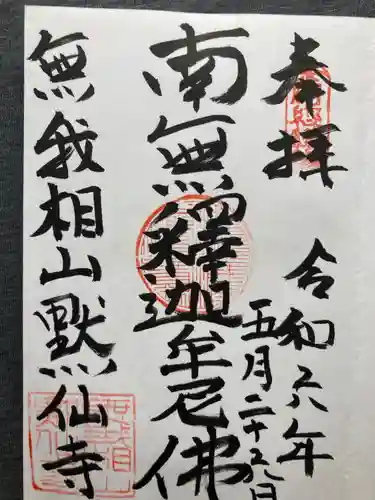 奉拝
令和六年
五月二十六日
南無釋迦牟尼佛
無我相山默仙寺